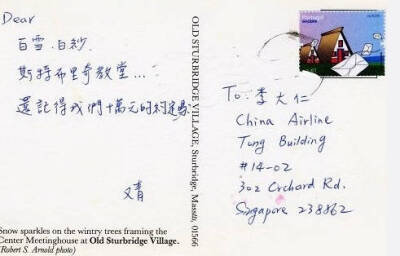 Dear
白雪.白紗
斯特布里奇教堂....
還記得我們十萬元的約定嗎
又青
Snow sparkles on the wintry trees framing the
Center Meetinghouse at Old Sturbridge Village.
(Robert S. Arnold photo)
OLD STURBRIDGE VILLAGE, Sturbridge, Massts. 01566
Portugal
To: 李大仁
China Airline
Tung Building
#14-02
302 Orchard Rd.
Singapore 238862